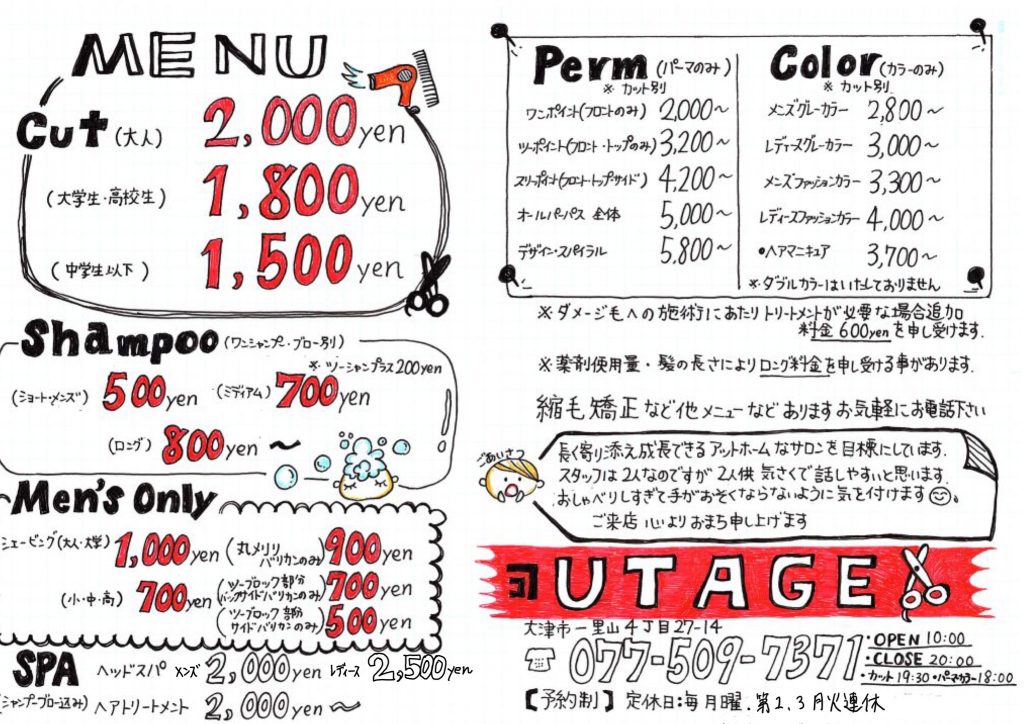 MENU
Cut (大人) 2,000yen
(大学生・高校生) 1,800yen
(中学生以下) 1,500yen
Shampoo (ワンシャンプ・ブロー別)
※ ツーシャンプラス200yen
(ショート・メンズ) 500yen (ミディアム) 700yen
(ロング) 800yen〜
Men's Only
シェービング(大人・大学) 1,000yen (丸メリリバリカンのみ) 900yen
(小・中・高) 700yen (ツーブロック部分バックサイドバリカンのみ) 700yen
(ツーブロック 部分サイドバリカンのみ) 500yen
SPA ヘッドスパ メンズ 2,000yen レディース 2,500yen
(シャンプーブロー込み) ヘアトリートメント 2,000yen〜
Perm (パーマのみ)
※ カット別
ワンポイント(フロントのみ) 2,000〜
ツーポイント(フロント・トップのみ) 3,200〜
スリーポイント(フロント・トップ・サイド) 4,200〜
オールパーパス 全体 5,000〜
デザイン・スパイラル 5,800〜
Color (カラーのみ)
※ カット別
メンズグレーカラー 2,800〜
レディースグレーカラー 3,000〜
メンズファッションカラー 3,300〜
レディースファッションカラー 4,000〜
●ヘアマニキュア 3,700〜
※ダブルカラーはいたしておりません
※ダメージ毛への施術にあたりトリートメントが必要な場合追加
料金600yenを申し受けます.
※薬剤使用量・髪の長さによりロング料金を申し受ける事があります.
縮毛矯正など他メニューなどありますお気軽にお電話下さい
ごあいさつ
長く寄り添え成長できるアットホームなサロンを目標にしています.
スタッフは2人なのですが 2人供 気さくで話しやすいと思います.
おしゃべりしすぎて手がおそくならないように気を付けます。
ご来店 心よりおまち申し上げます
UTAGE
大津市一里山4丁目27-14
077-509-7371
・OPEN 10:00
・CLOSE 20:00
・カット19:30・パーマカラー18:00
【予約制】 定休日:毎月曜.第2.3月火連休